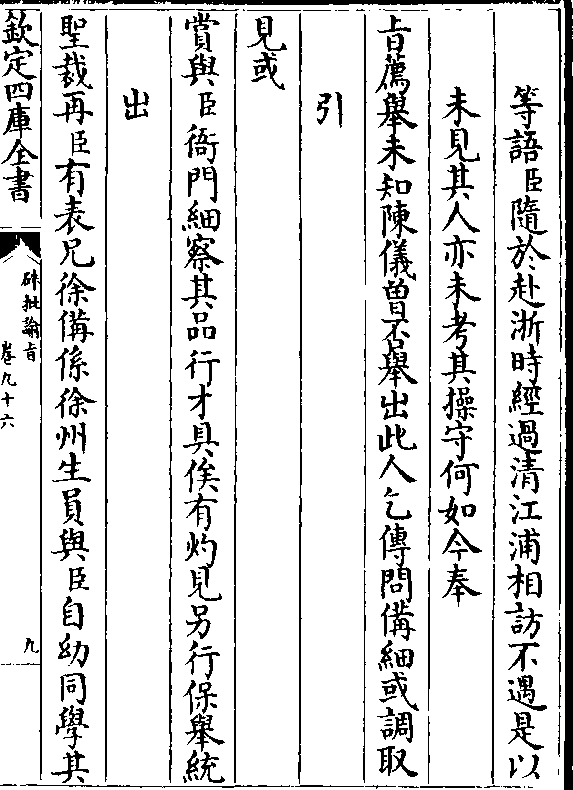 等語臣隨於赴浙時經過清江浦相訪不遇是以
未見其人亦未考其操守何如今奉
旨薦舉未知陳儀曾否舉出此人乞傳問備細或調取
引
見或
賞與臣衙門細察其品行才具俟有灼見另行保舉統
出
聖裁再臣有表兄徐備係徐州生員與臣自幼同學其
欽定四庫全書
硃批諭旨
卷九十六
九